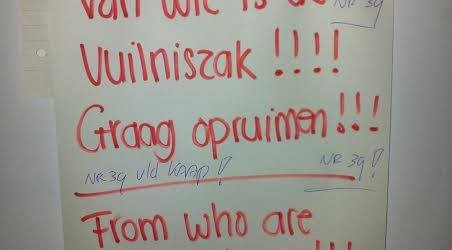 van wie is de NR 39
Vuilniszak !!!!
Graag opruimen!!!
NR 39 v/d KAAP! NR 39!
From who are